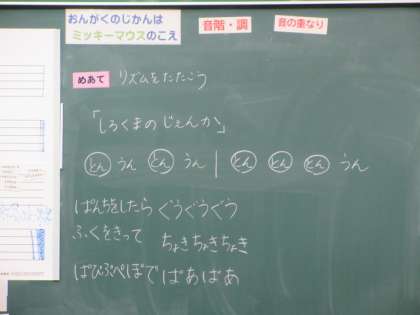 おんがくのじかんは
ミッキーマウスのこえ
音階・調
音の重なり
めあて リズムをたたこう
「しろくまのじぇんか」
とん うん とん うん | とん とん とん うん
ぱんちをしたら ぐうぐうぐう
ふくをきって ちょきちょきちょき
ぱぴぷぺぽで ぱあぱあ